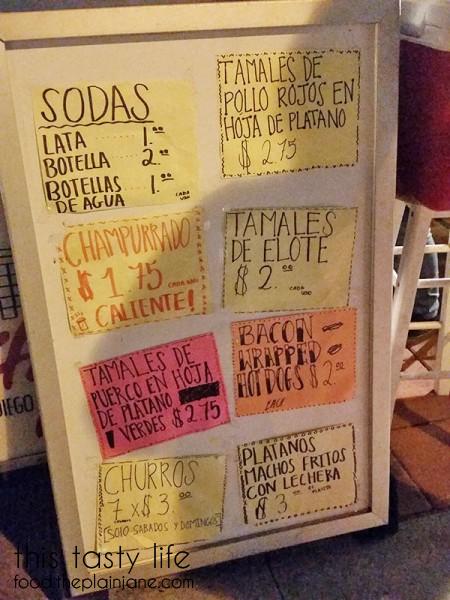 SODAS
LATA ........ 1.00
BOTELLA ..... 2.00
BOTELLAS ... 1.00
DE AGUA CADA UNO
TAMALES DE
POLLO ROJOS EN
HOJA DE PLATANO
$ 2.75
CHAMPURRADO
$ 1.75 CADA UNO
CALIENTE!
TAMALES
DE ELOTE
$ 2.00 CADA UNO
TAMALES DE
PUERCO EN HOJA
DE PLATANO
VERDES $2.75
BACON
WRAPPED
HOT DOGS $ 2.00
CHURROS
7 x $3.00
CHURROS
[SOLO SABADOS Y DOMINGOS]
PLATANOS
MACHOS FRITOS
CON LECHERA
$ 3.00 EL PLATO
DIEGO
this tasty life
food.theplainjane.com